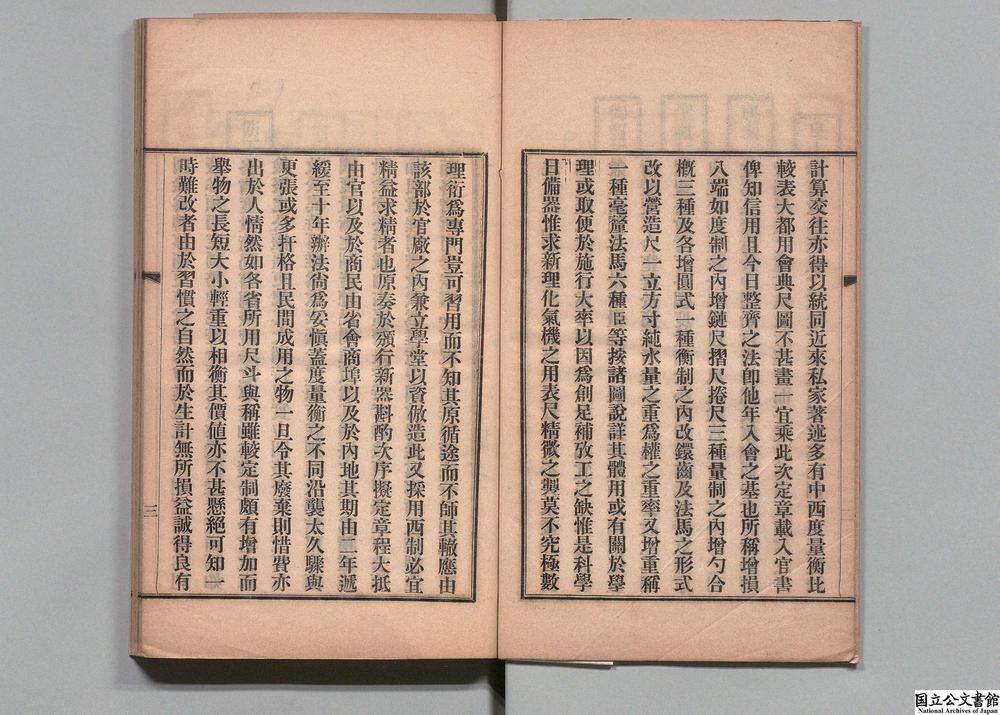 計算交往亦得以統同近來私家著述多有中西度量衡比
較表大都用會典尺圖不甚畫一宜乘此次定章載入官書
俾知信用且今日整齊之法卽他年入會之基也所稱增損
八端如度制之內增鏈尺摺尺捲尺三種量制之內增勺合
槪三種及各增圓式一種衡制之內改鐶齒及法馬之形式
改以營造尺一立方寸純水量之重爲權之重率又增重稱
一種毫釐法馬六種臣等按諸圖說詳其體用或有關於學
理或取便於施行大率以因爲創足補攷工之缺惟是科學
日備器惟求新理化氣機之用表尺精微之興莫不究極數
理衍爲專門豈可習用而不知其原循途而不師其轍應由
該部於官廠之內兼立學堂以資倣造此又採用西制必宜
精益求精者也原奏於頒行新器斟酌次序擬定章程大抵
由官以及於商民由省會商埠以及於內地其期由二年遞
緩至十年辦法尙爲妥愼蓋度量衡之不同沿襲太久驟與
更張或多扞格且民間成用之物一旦令其廢棄則惜費亦
出於人情然如各省所用尺斗與稱雖較定制頗有增加而
舉物之長短大小輕重以相衡其價値亦不甚懸絕可知一
時難改者由於習慣之自然而於生計無所損益誠得良有
三
国立公文書館
National Archives of Japan